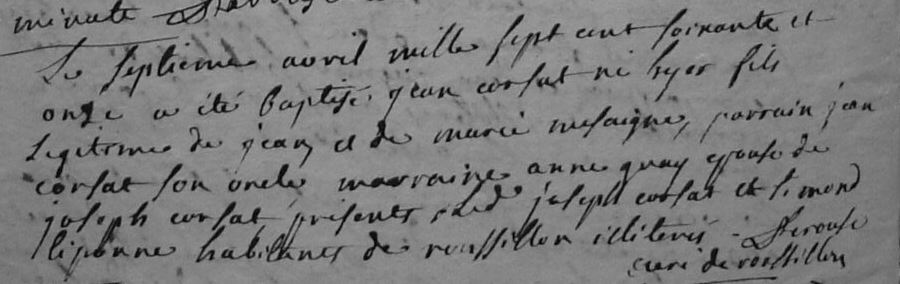 minute
Le septieme avril mille sept cent soixante et
onze a été baptisé jean corsat né hyer fils
legitime de jean et de marie mesaigne, parrain jean
corsat son oncle marraine anne quay epouse de
joseph corsat, présents joseph corsat et simond
habitants de roussillon illiterés
curé de roussillon